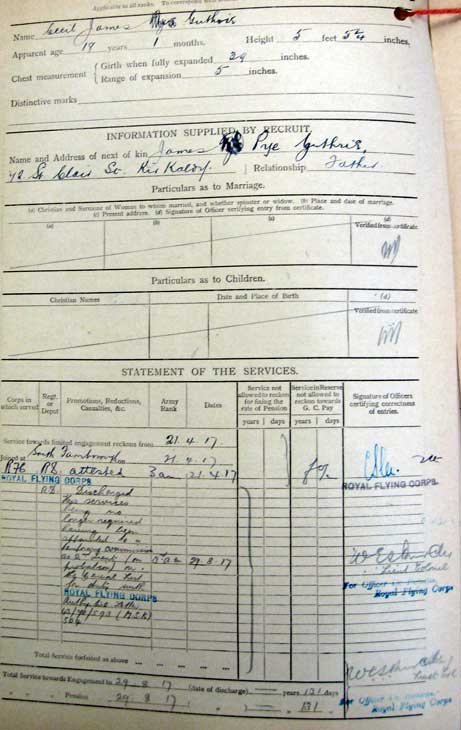 Applicable to all ranks.
Name Cecil James Pye Guthrie
Apparent age 19 years 1 months. Height 5 feet 5¼ inches,
Chest measurement { Girth when fully expanded 39 inches.
Range of expansion 5 inches.
Distinctive marks
INFORMATION SUPPLIED BY RECRUIT.
Name and Address of next of kin James Pye Guthrie,
42 St Clair St. Kirkaldy. Relationship Father
Particulars as to Marriage.
(a) Christian and Surname of Woman to whom married, and whether spinster or widow. (b) Place and date of marriage.
(c) Present address. (d) Signature of Officer verifying entry from certificate.
(a) (b) (c) (d)
Verified from certificate
Particulars as to Children.
Christian Names Date and Place of Birth (d)
Verified from certificate
STATEMENT OF THE SERVICES.
Corps in which served Regt. or Depot Promotions, Reductions, Casualties, &c. Army Rank Dates Service not allowed to reckon for fixing the rate of Pension Service in Reserve not allowed to reckon towards G. C. Pay Signature of Officers certifying correctness of entries.
years days years days
Service towards limited engagement reckons from 21.4.17.
Joined at South Farnborough on 21.4.17
attested 3 am 21.4.17
ROYAL FLYING CORPS. ROYAL FLYING CORPS.
Discharged
His services
being no
longer required
having been
appointed to a
temporary commission
as 2 Lieut (on
probation) 29.8.17
for duty with
ROYAL FLYING CORPS
Lieut Colonel
For Officer
Royal Flying Corps
Total Service forfeited as above
Total Service towards Engagement to 29.8.17 (date of discharge) years 131 days
" " Pension " 29.8.17 " 131 "
Lieut Col
For Officer
Royal Flying Corps